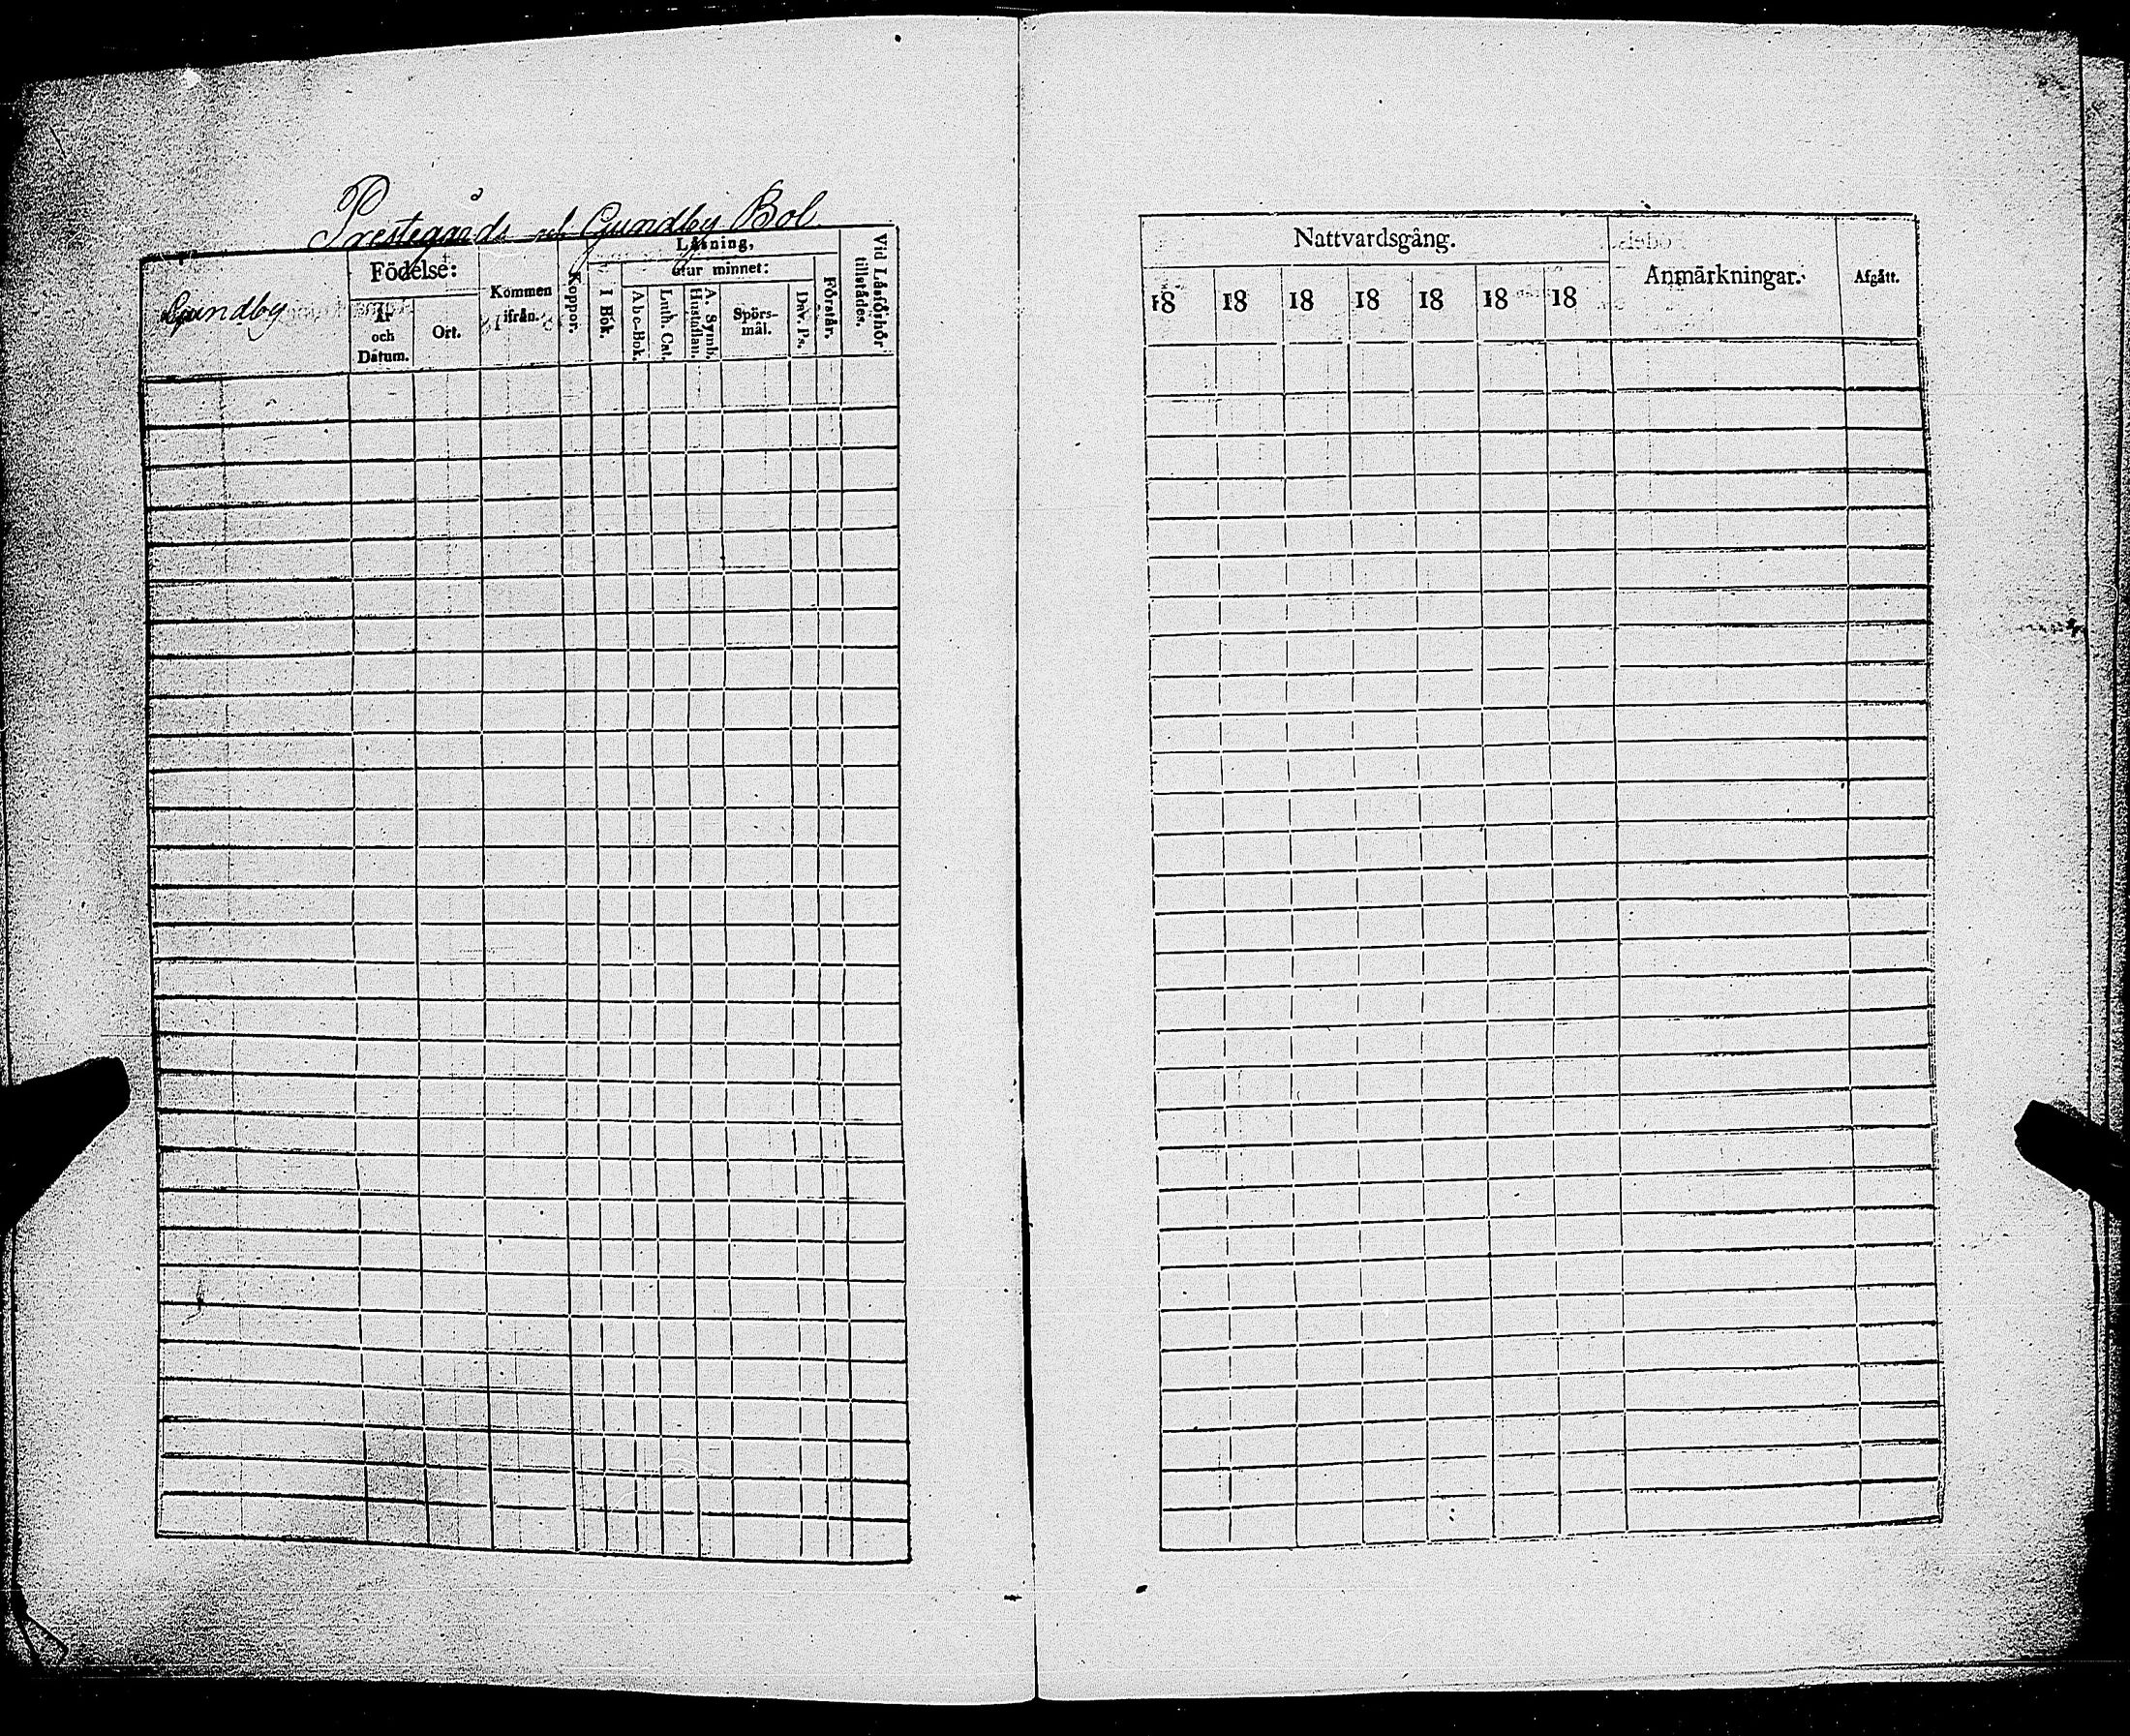 Prestegårds och Gundby Bol
Gundby
Födelse:
År
och
Datum.
Ort.
Kommen
ifrån.
Koppor.
Läsning,
I Bok.
utur minnet:
Abc-Bok.
Luth. Cat.
A. Symb.
Hustaflan.
Spörs-
mål.
Dav. Ps.
Förstår.
Vid Läsförhör
tillstädes.
Nattvardsgång.
18 18 18 18 18 18 18
Anmärkningar.
Afgått.